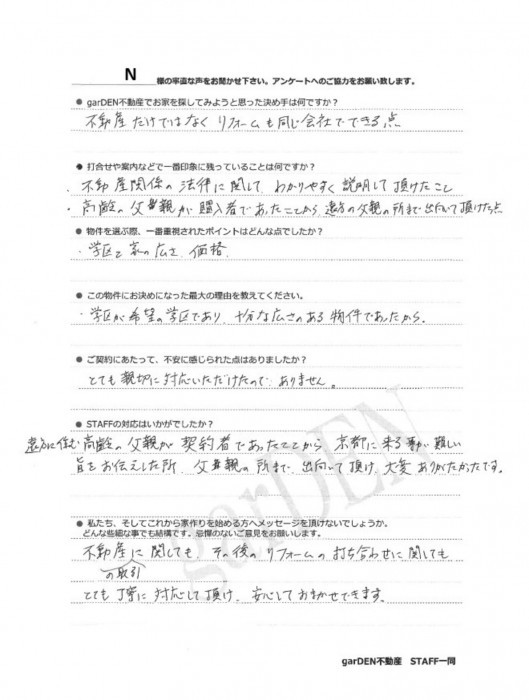 N 様の率直な声をお聞かせ下さい。アンケートへのご協力をお願い致します。
● garDEN不動産でお家を探してみようと思った決め手は何ですか？
不動産だけではなくリフォームも同じ会社でできる点
● 打合せや案内などで一番印象に残っていることは何ですか？
・不動産関係の法律に関して、わかりやすく説明して頂けたこと
・高齢の父親が購入者であったことから遠方の父親の所まで出向いて頂けた点
● 物件を選ぶ際、一番重視されたポイントはどんな点でしたか？
・学区と家の広さ、価格
● この物件にお決めになった最大の理由を教えてください。
・学区が希望の学区であり、十分な広さのある物件であったから。
● ご契約にあたって、不安に感じられた点はありましたか？
とても親切に対応いただけたので、ありません。
● STAFFの対応はいかがでしたか？
遠方に住む高齢の父親が契約者であったことから、京都に来る事が難しい
旨をお伝えした所、父親の所まで、出向いて頂け、大変ありがたかったです。
● 私たち、そしてこれから家作りを始める方へメッセージを頂けないでしょうか。
どんな些細な事でも結構です。忌憚のないご意見をお願いします。
不動産に関しても、その後のリフォームの打ち合わせに関しても
の取引
とても丁寧に対応して頂け、安心しておまかせできます。
garDEN
garDEN不動産 STAFF一同